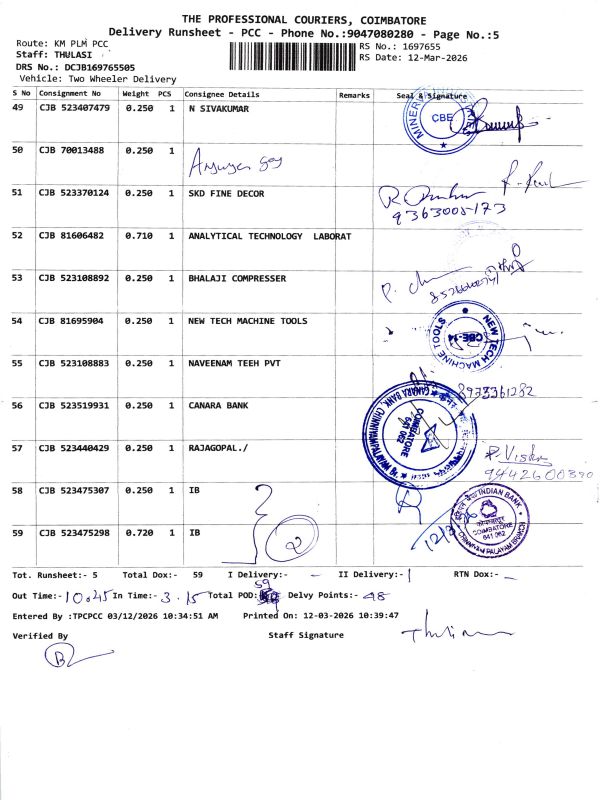 THE PROFESSIONAL COURIERS, COIMBATORE
Delivery Runsheet - PCC - Phone No.:9047080280 - Page No.:5
Route: KM PLM PCC
Staff: THULASI
DRS No.: DCJB169765505
Vehicle: Two Wheeler Delivery
RS No.: 1697655
RS Date: 12-Mar-2026
S No Consignment No Weight PCS Consignee Details Remarks Seal & Signature
49 CJB 523407479 0.250 1 N SIVAKUMAR
CBE
50 CJB 70013488 0.250 1
51 CJB 523370124 0.250 1 SKD FINE DECOR
9363005173
52 CJB 81606482 0.710 1 ANALYTICAL TECHNOLOGY LABORAT
53 CJB 523108892 0.250 1 BHALAJI COMPRESSER
54 CJB 81695904 0.250 1 NEW TECH MACHINE TOOLS
NEW TECH MACHINE TOOLS
CBE-14
55 CJB 523108883 0.250 1 NAVEENAM TEEH PVT
56 CJB 523519931 0.250 1 CANARA BANK
CANARA BANK
COIMBATORE
641 062
57 CJB 523440429 0.250 1 RAJAGOPAL./
9442600390
58 CJB 523475307 0.250 1 IB
59 CJB 523475298 0.720 1 IB
2
INDIAN BANK
COIMBATORE
641 062
Tot. Runsheet:- 5 Total Dox:- 59 I Delivery:- - II Delivery:- RTN Dox:- -
Out Time:- 10.45 In Time:- 3.15 Total POD: 59 Delvy Points:- 48
Entered By :TPCPCC 03/12/2026 10:34:51 AM Printed On: 12-03-2026 10:39:47
Verified By Staff Signature